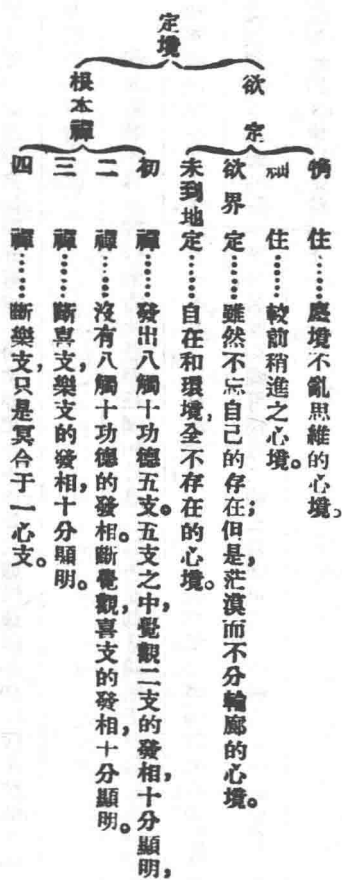 定境
欲定
觕住……塵境不亂思維的心境。
細住……較前稍進之心境。
欲界定……雖然不忘自己的存在；但是，茫漠而不分輪廓的心境。
未到地定……自在和環境，全不存在的心境。
根本禪
初禪……發出八觸十功德五支。五支之中，覺觀二支的發相，十分顯明，
二禪……沒有八觸十功德的發相。斷覺觀，喜支的發相，十分顯明。
三禪……斷喜支，樂支的發相，十分顯明。
四禪……斷樂支，只是冥合于一心支。